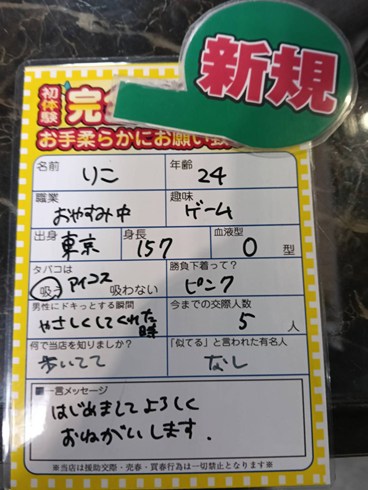 新規
初体験 完
お手柔らかにお願い致
名前 りこ 年齢 24
職業 おやすみ中 趣味 ゲーム
出身 東京 身長 157 血液型 O 型
タバコは 吸う アイコス 吸わない 勝負下着って? ピンク
男性にドキっとする瞬間 やさしくしてくれた時 今までの交際人数 5 人
何で当店を知りましたか? 歩いてて 「似てる」と言われた有名人 なし
■一言メッセージ
はじめまして よろしく
おねがいします.
※当店は援助交際・売春・買春行為は一切禁止となります※